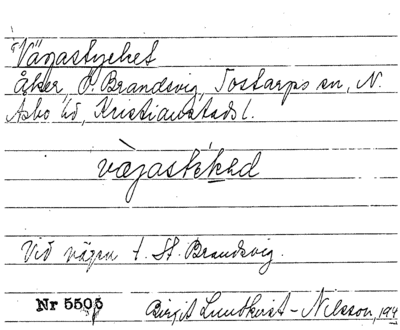 Vägastycket
Åker, Ö. Brandsvig, Tostarps sn, N.
Asbo hd, Kristianstads l.
vägastékəd
Vid vägen t. St. Brandsvig.
Nr 5505
Birgit Lundkvist-Nilsson, 194